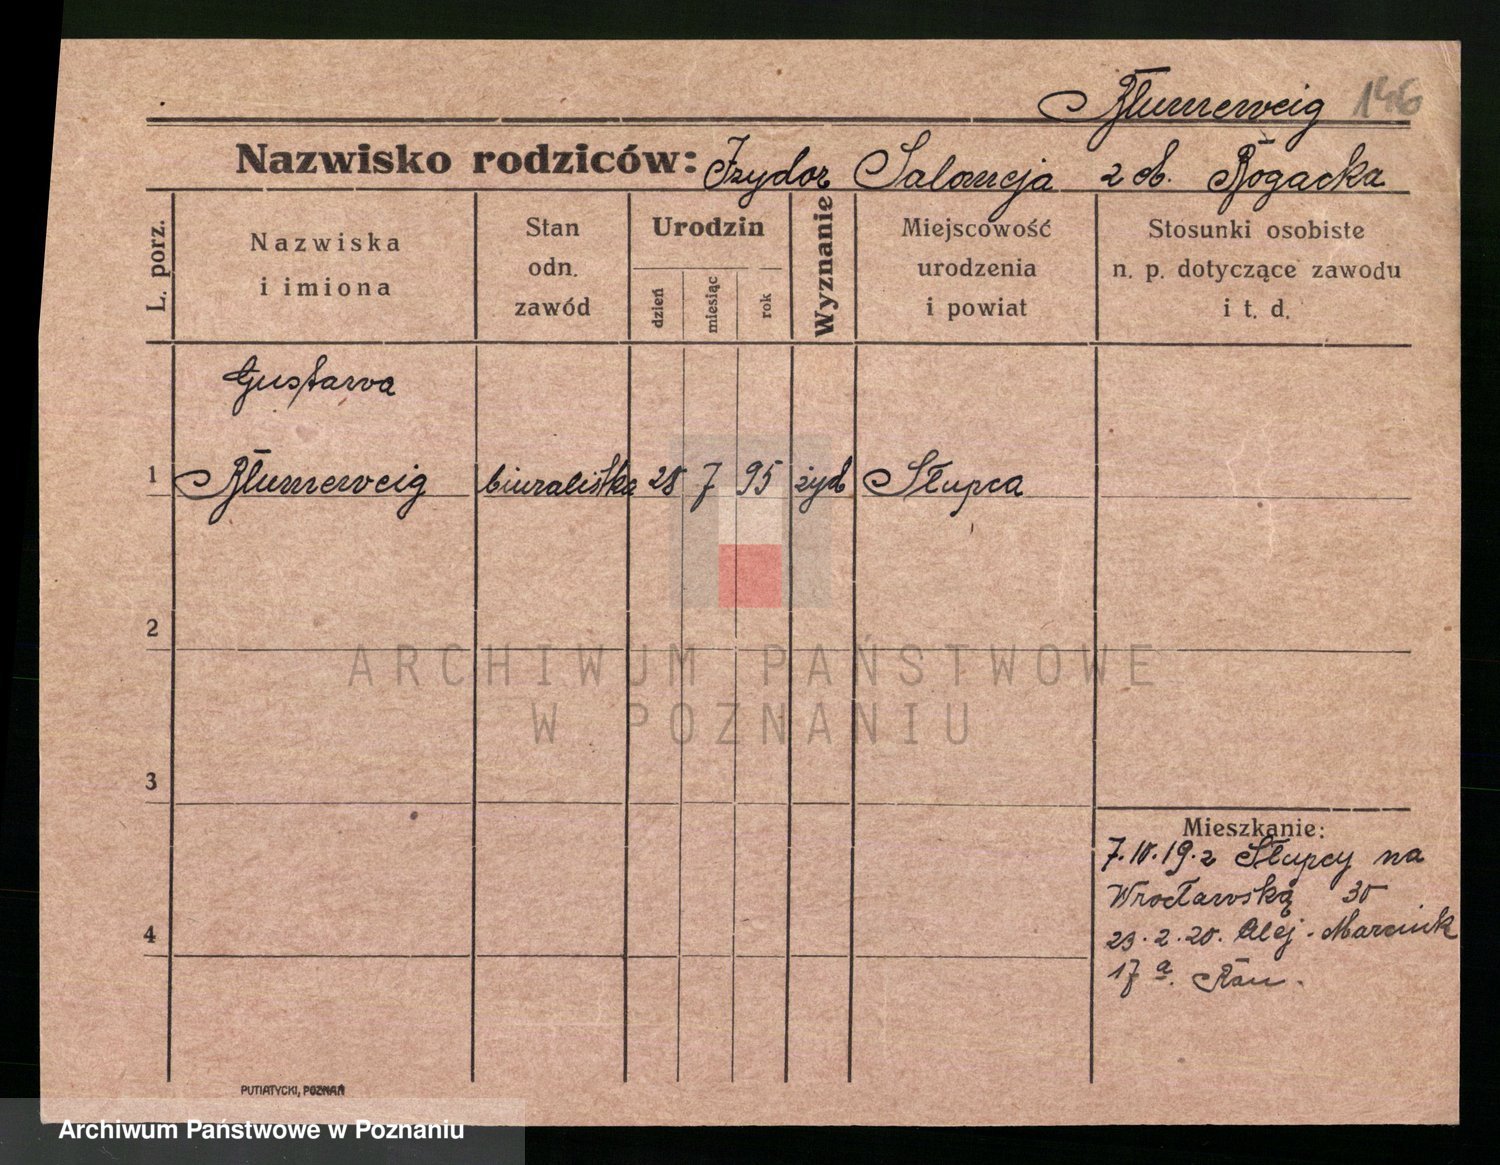 Blumenweig 146
Nazwisko rodziców: Izydor Salomeja z d. Rogacka
L. porz.
Nazwiska i imiona
Stan odn. zawód
Urodzin
dzień
miesiąc
rok
Wyznanie
Miejscowość urodzenia i powiat
Stosunki osobiste n. p. dotyczące zawodu i t. d.
Gustawa
1 Blumenweig biuralistka 28 7 95 żyd Słupca
2
ARCHIWUM PAŃSTWOWE
W POZNANIU
3
Mieszkanie:
7.10.19. z Słupcy na
Wrocławską 30
4
23.2.20. Alej. Marcink
17 a.
PUTIATYCKI, POZNAŃ
Archiwum Państwowe w Poznaniu